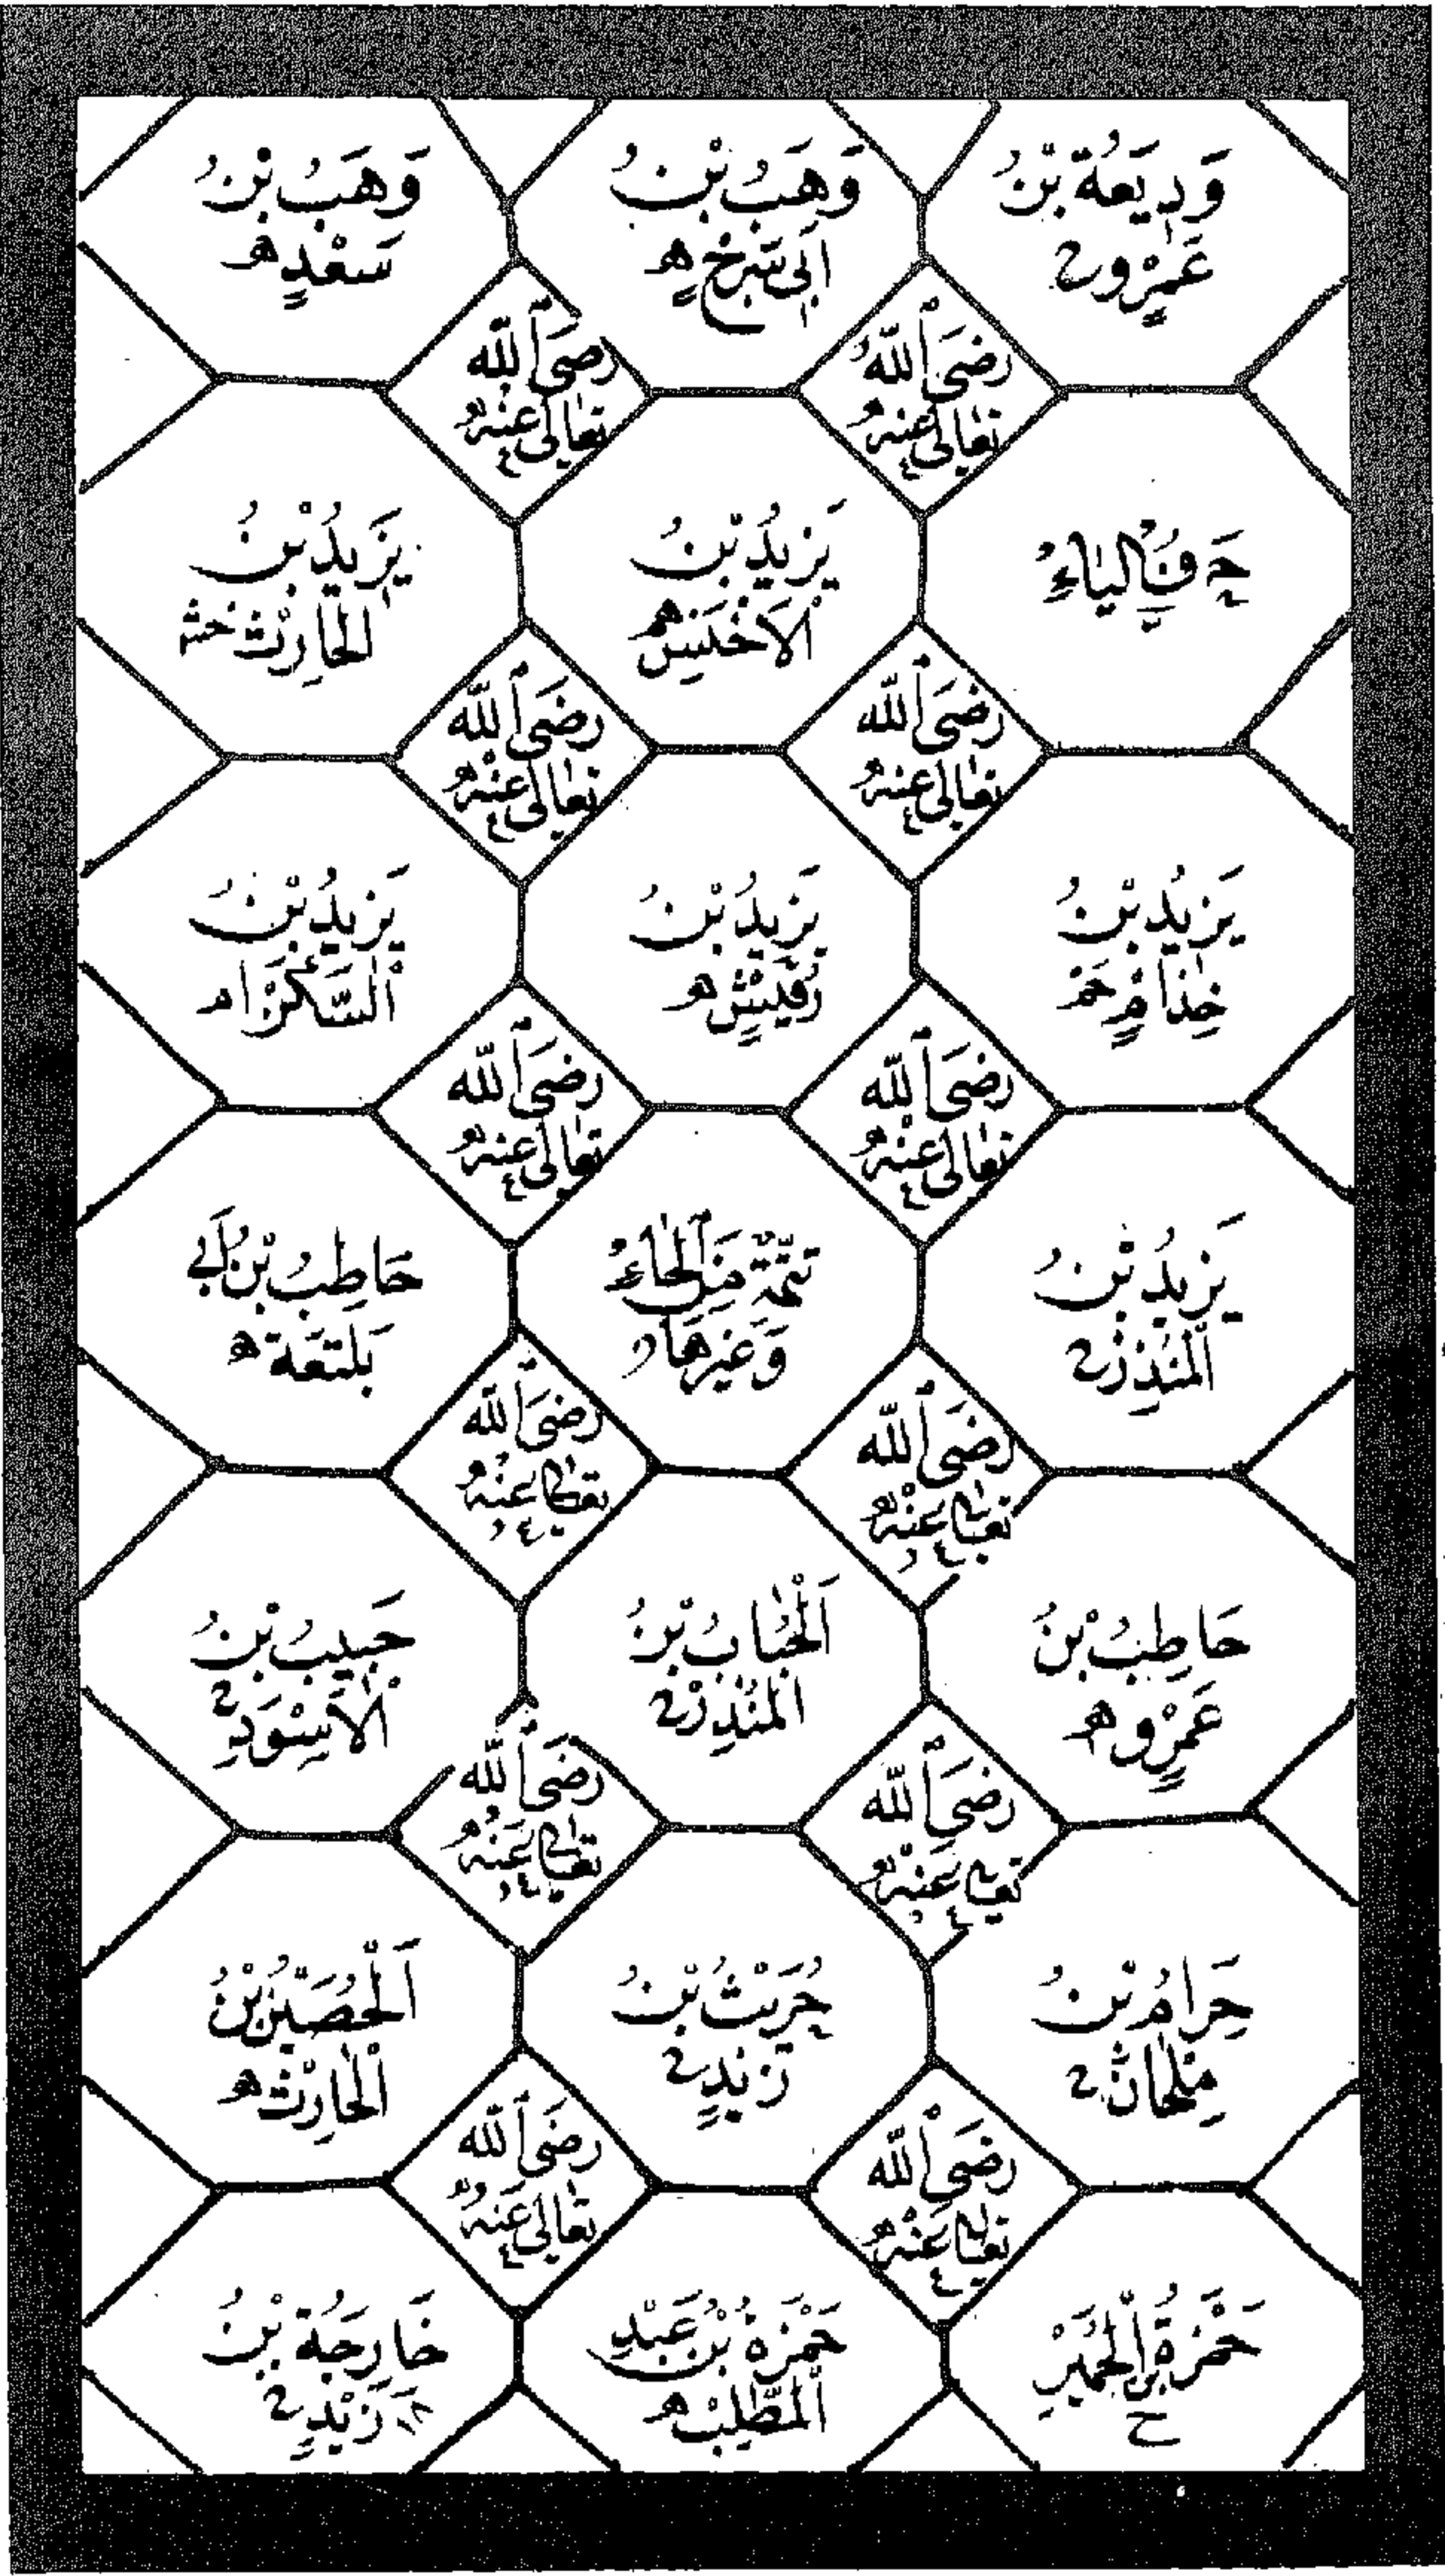 وَدِيعَةُ بْنُ
عَمْرٍو
وَهَبُ بْنُ
اَبِى سَرْحٍ ه
وَهَبُ بْنُ
سَعْدٍ ه
رَضِىَ اللّٰهُ
تَعَالٰى عَنْهُ
رَضِىَ اللّٰه
تَعَالٰى عَنْهُ
يَزِيدُ بْنُ
الْاَخْنَسِ ه
يَزِيدُ بْنُ
الْحَارِثِ
رَضِىَ اللّٰه
تَعَالٰى عَنْهُ
رَضِىَ اللّٰه
تَعَالٰى عَنْهُ
يَزِيدُ بْنُ
خِذَامٍ
يَزِيدُ بْنُ
رُقَيْشٍ ه
يَزِيدُ بْنُ
رَضِىَ اللّٰه
تَعَالٰى عَنْهُ
رَضِىَ اللّٰه
تَعَالٰى عَنْهُ
يَزِيدُ بْنُ
الْمُنْذِرِ
تَتِمَّةٌ مِنَ الْحَاءِ
وَغَيْرِهَا
حَاطِبُ بْنُ اَبِى
بَلْتَعَة ه
رَضِىَ اللّٰه
تَعَالٰى عَنْهُ
رَضِىَ اللّٰه
تَعَالٰى عَنْهُ
حَاطِبُ بْنُ
عَمْرٍو ه
اَلْحُبَابُ بْنُ
الْمُنْذِرِ
حَبِيبُ بْنُ
الْاَسْوَدِ
رَضِىَ اللّٰه
تَعَالٰى عَنْهُ
رَضِىَ اللّٰه
تَعَالٰى عَنْهُ
حَرَامُ بْنُ
مِلْحَانَ
حُرَيْثُ بْنُ
زَيْدٍ
اَلْحُصَيْنُ بْنُ
الْحَارِثِ ه
رَضِىَ اللّٰه
تَعَالٰى عَنْهُ
رَضِىَ اللّٰه
تَعَالٰى عَنْهُ
حَمْزَةُ بْنُ الْحُمَيِّرِ
ح
حَمْزَةُ بْنُ عَبْدِ
الْمُطَّلِبِ ه
خَارِجَةُ بْنُ
زَيْدٍ